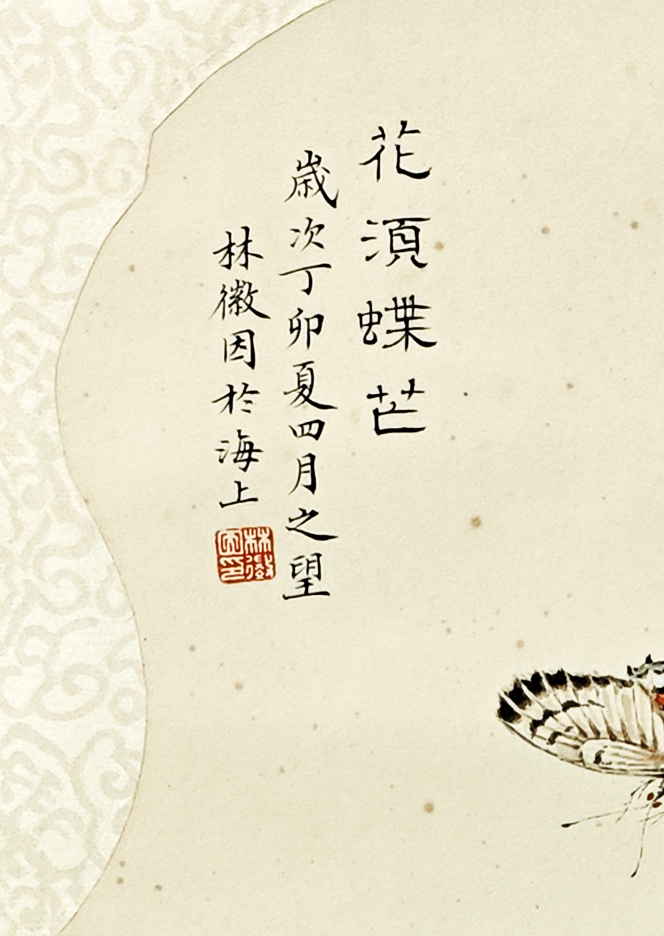 花湏蝶芒
歳次丁卯夏四月之望
林徽因於海上
林徽因印